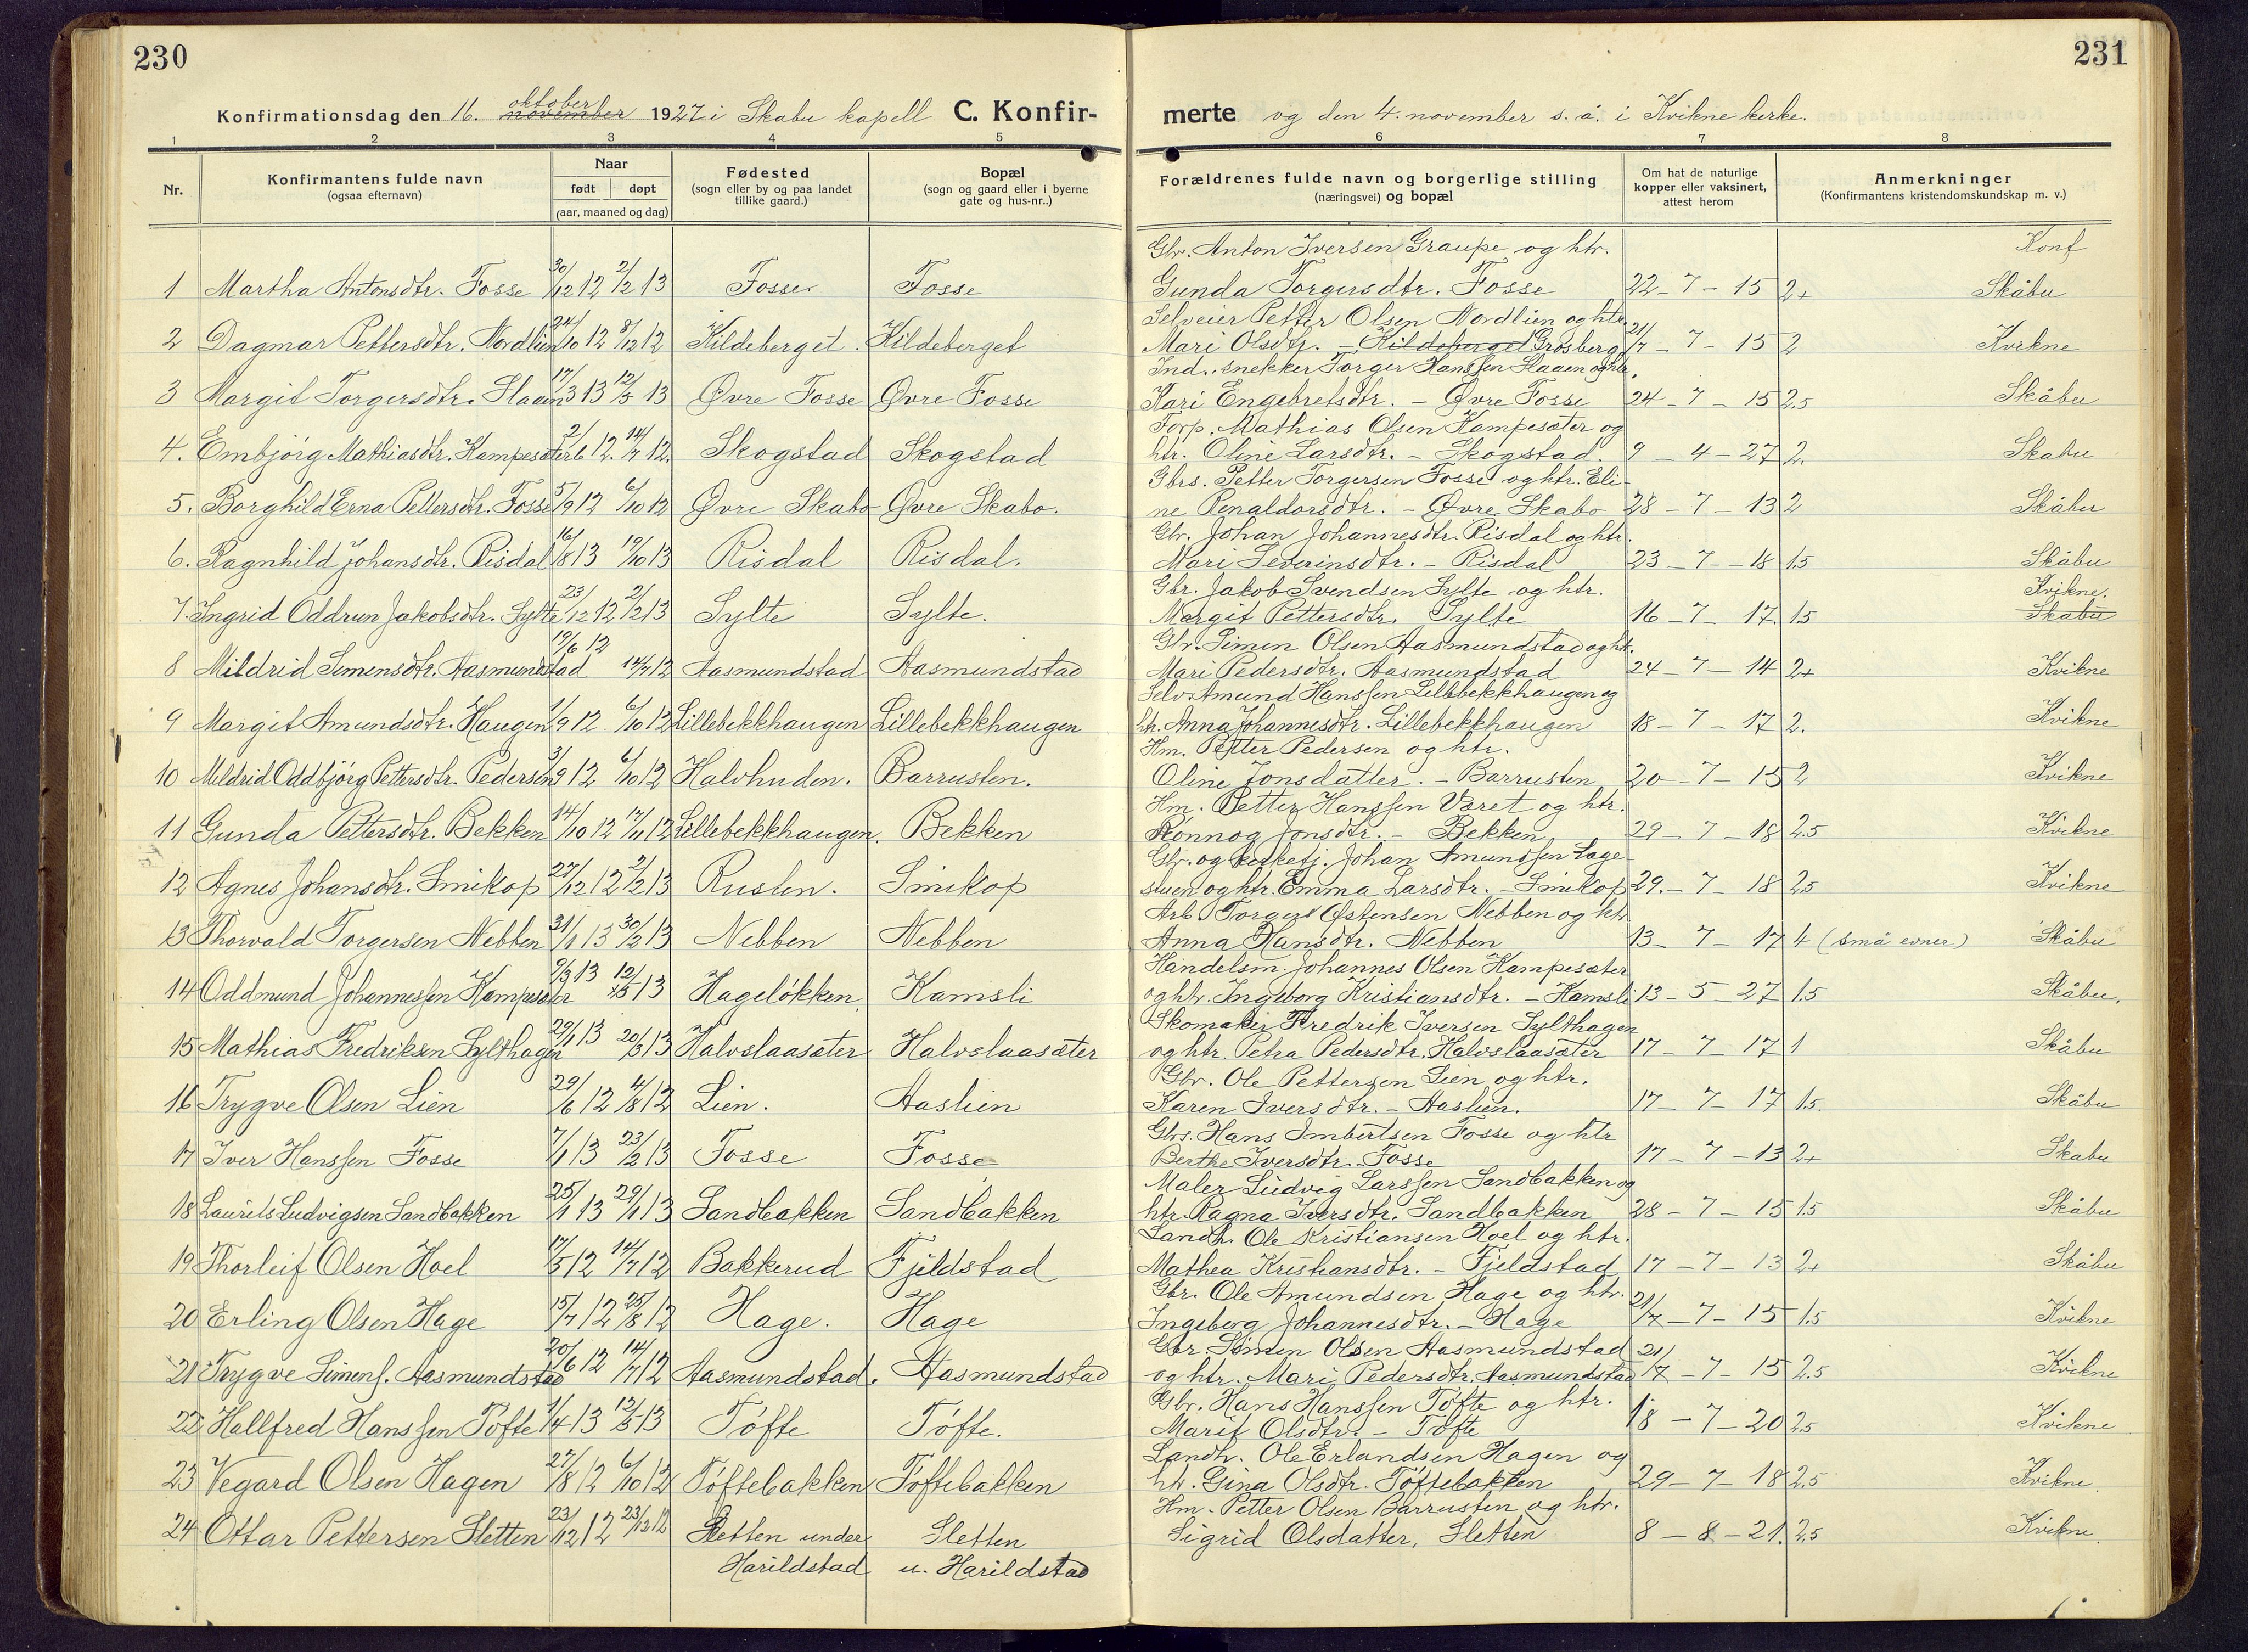 230
231
Konfirmationsdag den 16. oktober november 1927 i Skabu kapell C. Konfir-
merte og den 4. november s. á. i Kvikne kerke.
1 2 3 4 5 6 7 8
Nr.
Konfirmantens fulde navn
(ogsaa efternavn)
Naar
født døpt
(aar, maaned og dag)
Fødested
(sogn eller by og paa landet
tillike gaard.)
Bopæl
(sogn og gaard eller i byerne
gate og hus-nr..)
Forældrenes fulde navn og borgerlige stilling
(næringsvei) og bopæl
Om hat de naturlige
kopper eller vaksinert,
attest herom
Anmerkninger
(Konfirmantens kristendomskundskap m. v.)
Gbr. Anton Iversen Graupe og htr. Konf
1 Martha Antonsdtr. Fosse 30/12 12 2/2 13 Fosse Fosse Gunda Torgersdtr. Fosse 22-7-15 2+ Skåbu
Selveier Petter Olsen Nordlien og htr.
2 Dagmar Pettersdtr. Nordlien 24/10 12 8/12 12 Kildeberget. Kildeberget Mari Olsdtr. - Kildeberget Grosberg 21/7-7-15 2 Kvikne
Ind., snekker Torger Hanssen Slaaen og htr.
3 Margit Torgersdtr. Slaaen 17/3 13 12/5 13 Øvre Fosse Øvre Fosse Kari Engebretsdtr. - Øvre Fosse 24-7-15 2.5 Skåbu
Forp. Mathias Olsen Kampesæter og
4. Embjörg Mathiasdtr. Kampesæter 2/6 12. 14/7 12. Skogstad Skogstad htr. Oline Larsdtr. - Skogstad. 9-4-27 2. Skabu
Gbrs. Petter Torgersen Fosse og htr. Eli-
5. Borghild Erna Pettersdtr. Fosse 5/9 12 6/10 12 Øvre Skabo Øvre Skabo. ne Renaldorsdtr. - Øvre Skabo 28-7-13 2 Skåbu
Gbr. Johan Johannesdtr. Risdal og htr.
6. Ragnhild Johansdtr. Risdal 16/8 13 19/10 13 Risdal Risdal. Mari Severinsdtr. - Risdal 23-7-18 1.5 Skåbu
Gbr. Jakob Svendsen Sylte og htr. Kvikne.
7. Ingrid Oddrun Jakobsdtr. Sylte 23/12 12 2/2 13 Sylte Sylte. Margit Pettersdtr. Sylte 16-7-17. 1.5 Skabu
Gbr. Simen Olsen Aasmundstad og htr.
8 Mildrid Simensdtr. Aasmundstad 19/6 12 14/7 12 Aasmundstad Aasmundstad Mari Pedersdtr. Aasmundstad 24-7-14 2+ Kvikne
Selv. Amund Hanssen Lillebekkhaugen og
9 Margit Amundsdtr. Haugen 1/9 12. 6/10 12 Lillebekkhaugen Lillebekkhaugen htr. Anna Johannesdtr. Lillebekkhaugen 18-7-17 2. Kvikne
Hm. Petter Pedersen og htr.
10 Mildrid Oddbjörg Pettersdtr. Pedersen 3/9 12 6/10 12 Halvhuden. Barrusten. Oline Jonsdatter. - Barrusten 20-7-15 2 Kvikne
Hm. Petter Hanssen Været og htr.
11 Gunda Pettersdtr. Bekken 14/10 12 17/11 12 Lillebekkhaugen. Bekken Rönnog Jonsdtr. - Bekken 29-7-18 2.5 Kvikne
Gbr. og kirketj. Johan Amundsen Lage-
12 Agnes Johansdtr. Smikop 27/12 12 2/2 13 Rusten. Smikop stuen og htr. Emma Larsdtr. - Smikop 29.-7-18 2.5 Kvikne
Arb. Torger Østensen Nebben og htr.
13 Thorvald Torgersen Nebben 31/1 13 30/2 13 Nebben Nebben Anna Hansdtr. Nebben 13-7-17 4 (små evner) Skåbu
Handelsm. Johannes Olsen Kampesæter
14 Oddmund Johannessen Kampesæter 9/3 13 12/5 13 Hageløkken Kamsli og htr. Ingeborg Kristiansdtr. - Kamsli 13-5-27 1.5 Skåbu.
Skomaker Fredrik Iversen Sylthagen
15 Mathias Fredriksen Sylthagen 29/1 13 20/3 13 Halvslaasæter Halvslaasæter og htr. Petra Pedersdtr. Halvslaasæter 17-7-17 1 Skåbu
Gbr. Ole Pettersen Lien og htr.
16 Trygve Olsen Lien 29/6 12 4/8 12 Lien. Aaslien Karen Iversdtr. - Aaslien. 17-7-17 1.5. Skåbu
Gbrs. Hans Imbertsen Fosse og htr
17 Iver Hanssen Fosse 7/1 13 23/2 13 Fosse Fosse Berthe Iversdtr. Fosse 17-7-13 2+ Skabu
Maler Ludvig Larssen Sandbakken og
18 Laurits Ludvigsen Sandbakken 25/1 13 29/1 13 Sandbakken Sandbakken htr. Ragna Iversdtr. Sandbakken 28-7-15 1.5 Skåbu
Landh. Ole Kristiansen Hoel og htr.
19 Thorleif Olsen Hoel 17/5 12 14/7 12 Bakkerud Fjeldstad Mathea Kristiansdtr. - Fjeldstad 17-7-13 2+ Skåbu
Gbr. Ole Amundsen Hage og htr.
20 Erling Olsen Hage 15/7 12 25/8 12 Hage. Hage Ingeborg Johannesdtr. - Hage 21/7-7-15 1.5 Kvikne
Gbr. Simen Olsen Aasmundstad
21 Trygve Simens. Aasmundstad 20/6 12 14/7 12 Aasmundstad. Aasmundstad og htr. Mari Pedersdtr. Aasmundstad 21/7-7-15 2.5 Kvikne
Gbr. Hans Hanssen Töfte og htr.
22 Hallfred Hanssen Töfte 1/4 13 12/5 13 Töfte Töfte. Marit Olsdtr. - Töfte 18-7-20 2.5 Kvikne
Landh. Ole Erlandsen Hagen og
23 Vegard Olsen Hagen 27/8 12 6/10 12 Töftebakken Töftebakken htr. Gina Olsdtr. Töftebakken 29-7-18 2.5 Kvikne
Hm. Petter Olsen Barrusten og htr.
24 Ottar Pettersen Sletten 23/12 12 23/12 12 Sletten under Sletten Sigrid Olsdatter, Sletten 8-8-21. 2.5 Kvikne.
Harildstad u. Harildstad